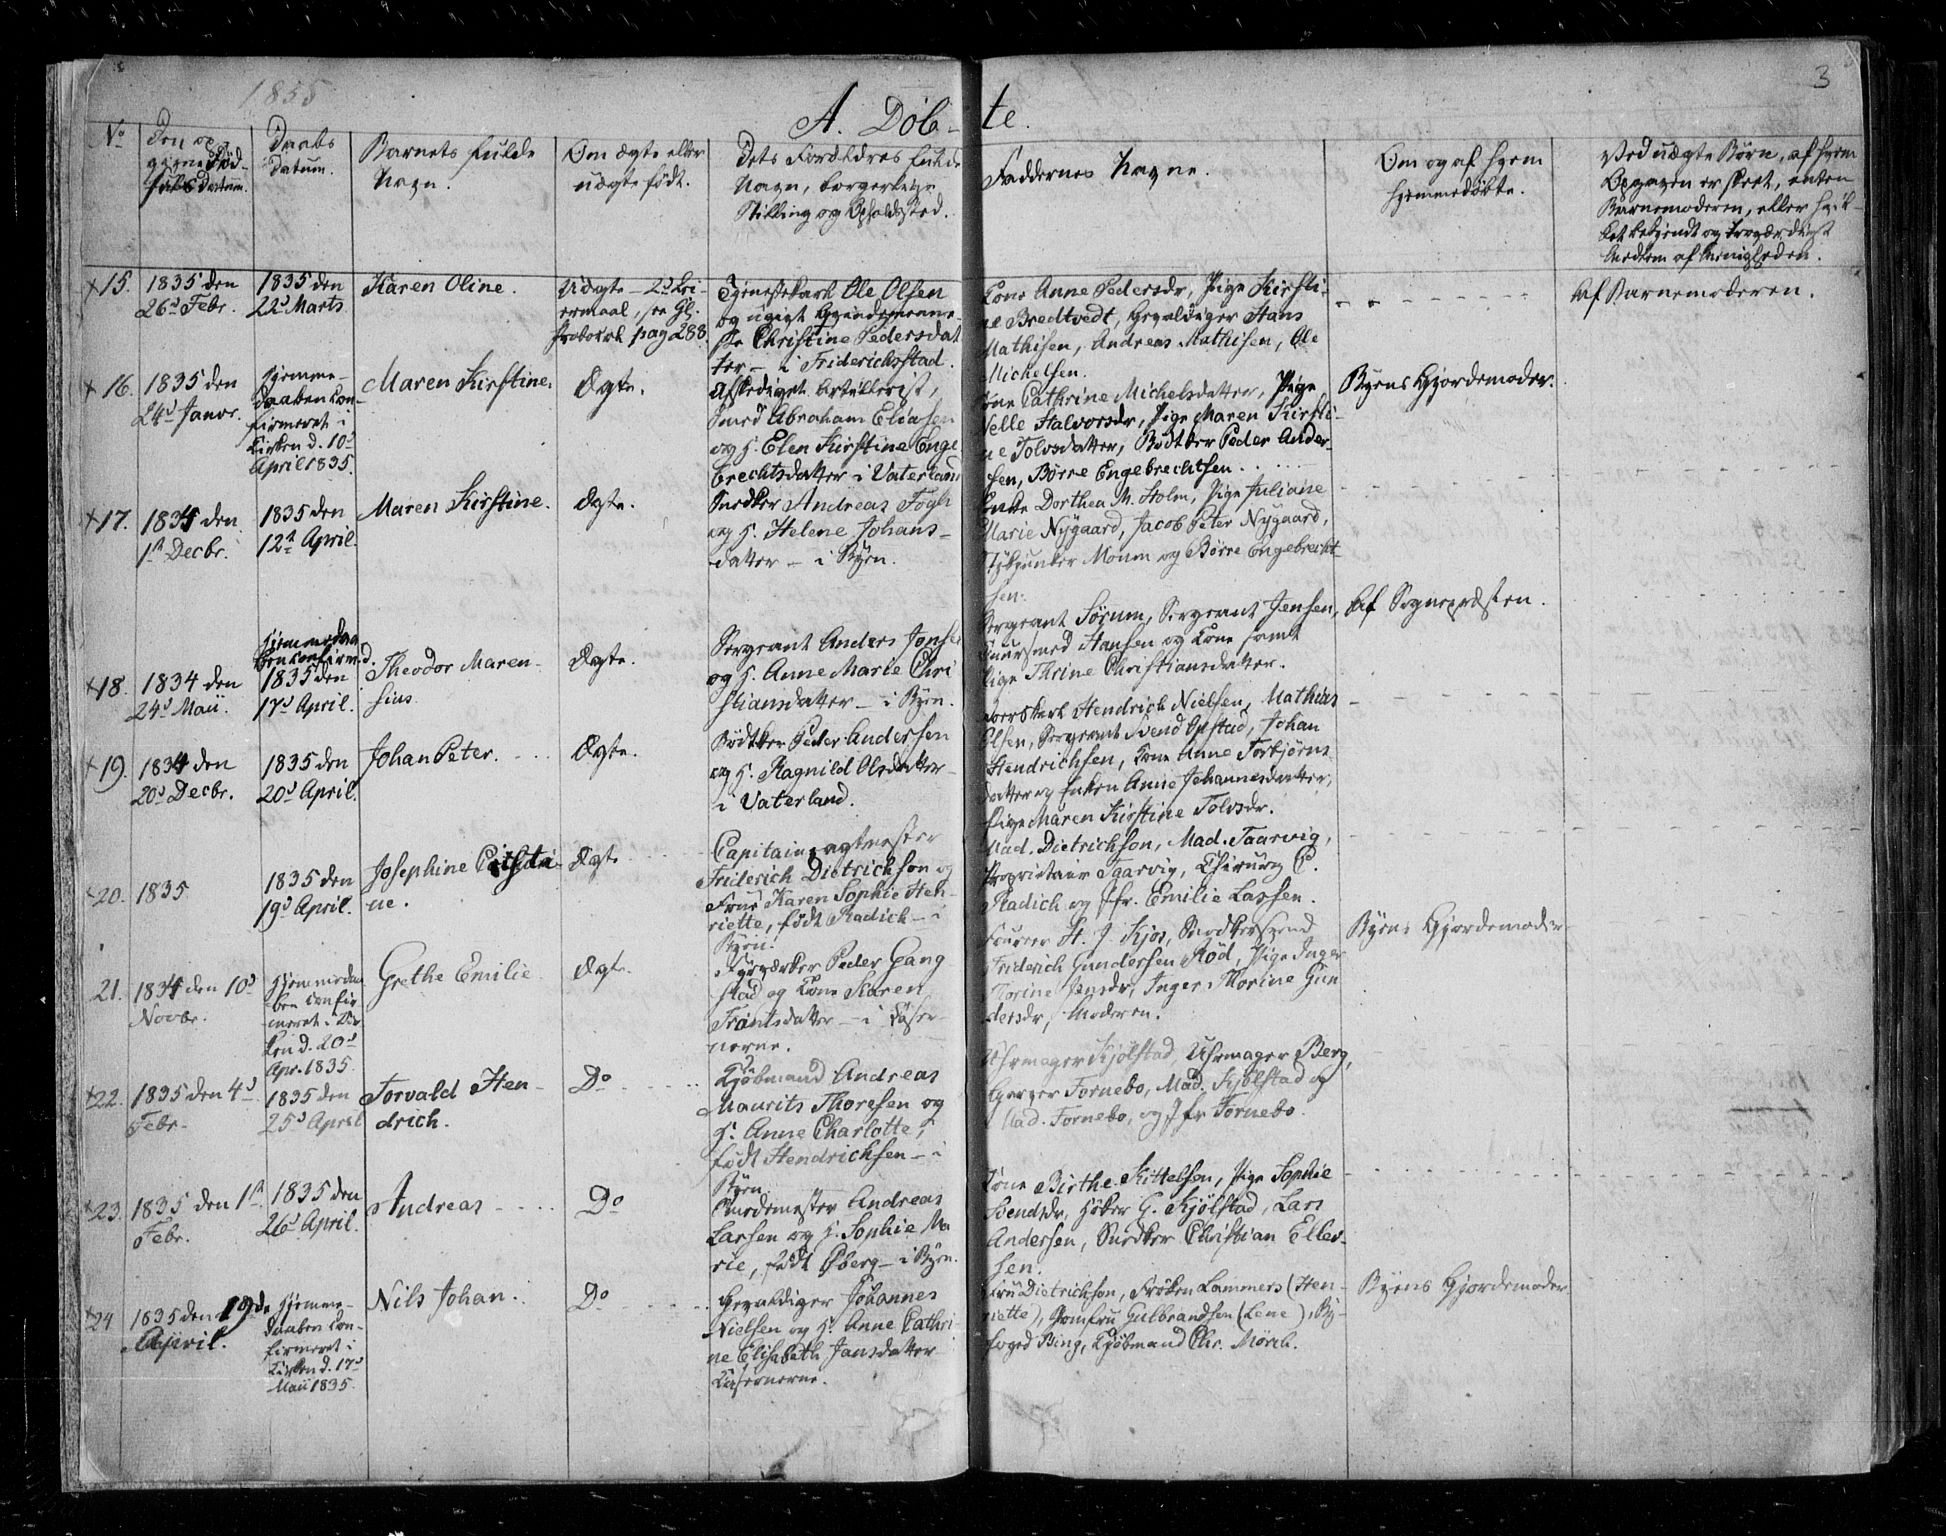 1835
3
A. Döb- te.
No
Den op
givne Fød-
sels Datum.
Daabs
Datum.
Barnets fulde
Navn.
Om ægte eller
uægte født.
Dets Forældres fulde
Navn, borgerlige
Stilling og Opholdssted.
Faddernes Navne.
Om og af hvem
hjemmedøbte.
Ved uægte Børn, af hvem
Opgaven er skeet, enten
Barnemoderen, eller hvil-
ket bekjendt og troværdigt
Medlem af Menigheden.
+15.
1835 den
26d Febr.
1835 den
22d Marts
Karen Oline.
Uægte - 2d Lei-
ermaal, see Gl.
Protokol pag 288.
Tjenestekarl Ole Olsen
og ugift
Christine Pedersdat
ter - i Friderichsstad.
Kone Anne Pedersdr, Pige Kirsti-
ne Bredtvedt, Gevaldiger Hans
Mathisen, Andreas Mathisen, Ole
Michelsen.
Af Barnemoderen.
+16.
1835 den
24d Janvr.
Hjemme-
daaben con-
firmeret i
Kirken d. 10d
April 1835.
Maren Kirstine.
Ægte.
Afskediget Artillerist,
Smed Abraham Eliasen
og H. Elen Kirstine Enge
brechtsdatter i Vaterland
Kone Cathrine Michelsdatter, Pige
Pernelle Halvorsdr, Pige Maren Kirsti-
ne Tolvsdatter, Bødtker Peder Ander
sen, Børre Engebrechtsen.
Byens Gjordemoder.
+17.
1834 den
1st Decbr.
1835 den
12te April.
Maren Kirstine.
Ægte.
Snedker Andreas Fogh
og H. Helene Johans-
datter - i Byen.
Enke Dorthea M. Holm, Pige Juliane
Marie Nygaard, Jacob Peter Nygaard,
Stykjunker Monin og Børre Engebrecht
sen.
+18.
1834 den
24d Maii.
Hjemmedaa
ben confirmd.
1835 den
17d April.
Theodor Maren-
sius.
Ægte.
Sergeant Anders Jensen
og H. Anne Marie Chri
stiansdatter - i Byen.
Sergeant Sörum, Sergeant Jensen,
Cuursmed Hansen og Kone samt
Pige Thrine Christiansdatter.
Af Sognepræsten.
+19.
1834 den
20d Decbr.
1835 den
20d April.
Johan Peter.
Ægte.
Bødtker Peder Andersen
og H. Ragnild Olsdatter
i Vaterland.
Hendrich Nielsen, Mathias
Olsen, Sergeant Svend Opstad, Johan
Hendrichsen, Kone Anne Torbjörns
datter og Enken Anne Johannesdatter,
Pige Maren Kirstine Tolvsdr.
20.
1835
1835 den
19d April.
Josephine Christi
ne.
Ægte
Capitain
Friderich Dietrichson og
Frue Karen Sophie Hen-
riette, født Radich - i
Byen.
Mad. Dietrichson, Mad. Taarvig,
Proprietair Tgarvig, Chirurg C.
Radich og Jfr. Emilie Lassen.
21.
1834 den 10d
Novbr.
Hjemmedaa
ben confir
meret i Kir
ken d. 20d
Apr. 1835
Grethe Emilie
Ægte.
Fyrværker Peder Gang
stad og Kone Karen
Frantsdatter - i Kaser-
nerne.
Fourer H. J. Kjos, Snedkersvend
Friderich Gundersen Röd, Pige Inger
Thorine Jensdr, Inger Thorine Gun
dersdr, Moderen.
Byens Gjordemoder
+22.
1835 den 4d
Febr.
1835 den
25d April
Torvald Hen-
drich.
Do
Kjøbmand Andreas
Maurits Thoresen og
H. Anne Charlotte,
født Hendrichsen - i
Byen.
Uhrmager Kjølstad, Uhrmager Berg,
Garver Fornebo, Mad. Kjölstad og
Mad. Fornebo, og Jfr Fornebo.
+23.
1835 den 1st
Febr.
1835 den
26d April.
Andreas
Do
Smedemester Andreas
Larsen og H. Sophie Ma
rie, født Öberg - i Byen.
Kone Birthe Kittelsen, Pige Sophie
Svendsdr, Höker G. Kjölstad, Lars
Andersen, Snedker Christian Ellev-
sen.
+24
1835 den 19de
April.
Hjemme-
daaben con-
firmeret i
Kirken d. 17d
Maii 1835.
Nils Johan.
Do
Gevaldiger Johannes
Nielsen og H. Anne Cathri-
ne Elisabeth Jansdatter
Kasernerne.
Fru Dietrichson, Frøken Lammers (Hen-
riette), Jomfru Gulbrandsen (Lene), By-
foged Bing, Kjöbmand Chr. Mörch.
Byens Gjordemoder